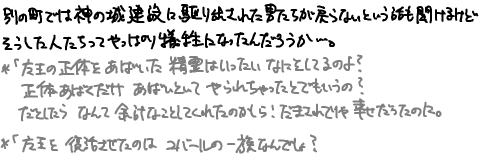 別の町では神の城建設に駆り出された男たちが戻らないという話も聞けるけど
そうした人たちってやっぱり犠牲になったんだろうか…。
*「左王の正体をあばいた 精霊はいったい なにをしてるのよ?
正体あばくだけ あばいといて やられちゃったとでもいうの?
だとしたら なんて 余計なことしてくれたのかしら! だまされてりゃ 幸せだったのに。
*「左王を 復活させたのは コパールの一族なんでしょ?